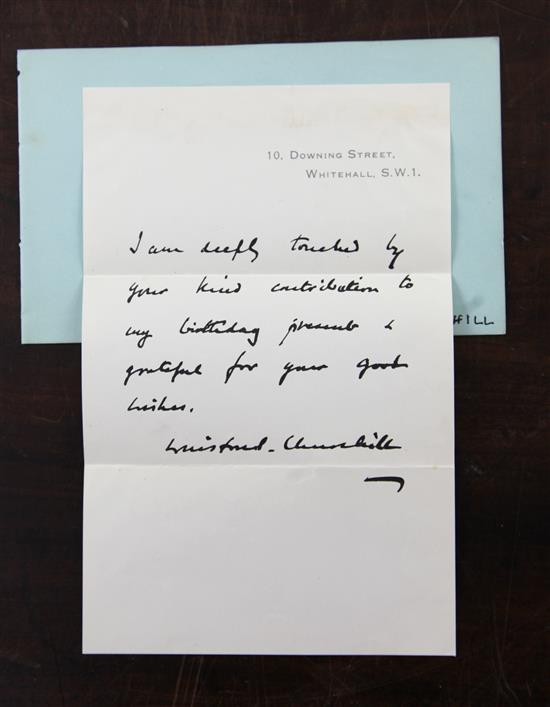 10, DOWNING STREET,
WHITEHALL, S.W.1.
I am deeply touched by
your kind contribution to
my birthday present &
grateful for your good
wishes.
Winston S. Churchill
HILL